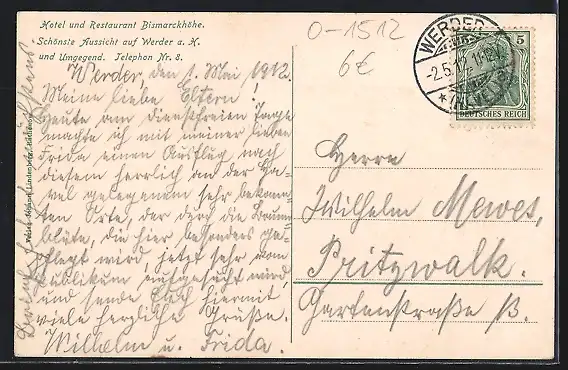 Hotel und Restaurant Bismarckhöhe.
Schönste Aussicht auf Werder a. H.
und Umgegend. Telephon Nr. 8.
Werder, den 1. Mai 1912.
Meine lieben Eltern!
Heute am dienstfreien Tage
machte ich mit meiner lieben
Frida einen Ausflug nach
diesem herrlich an der Ha-
vel gelegenem sehr bekann-
ten Orte, der durch die Baum-
blüte, die hier besonders ge-
pflegt wird, jetzt sehr vom
Publikum aufgesucht wird
und sende Euch hiermit
viele herzliche Grüße.
Wilhelm u. Frida.
O-1512
6€
WERDER
-2.5.12. 11-12V.
* (HAVEL)
5
DEUTSCHES REICH
Herrn
Wilhelm Mewes,
Pritzwalk.
Gartenstraße 13.